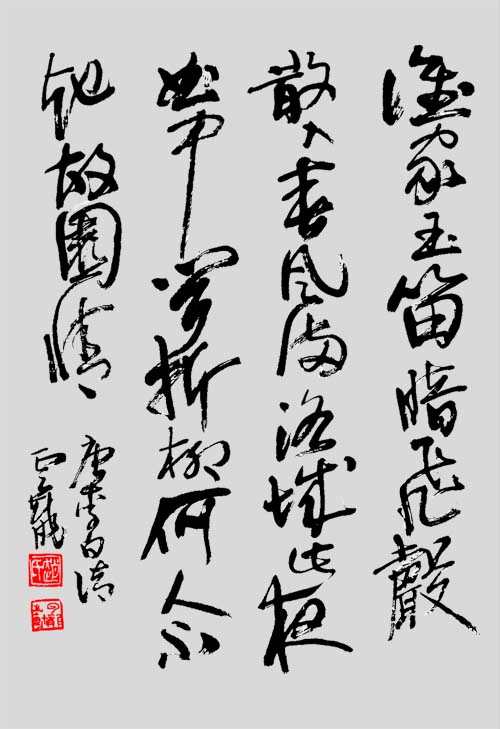 誰家玉笛暗飛聲
散入春風滿洛城此夜
曲中聞折柳何人不
起故園情
唐李白詩